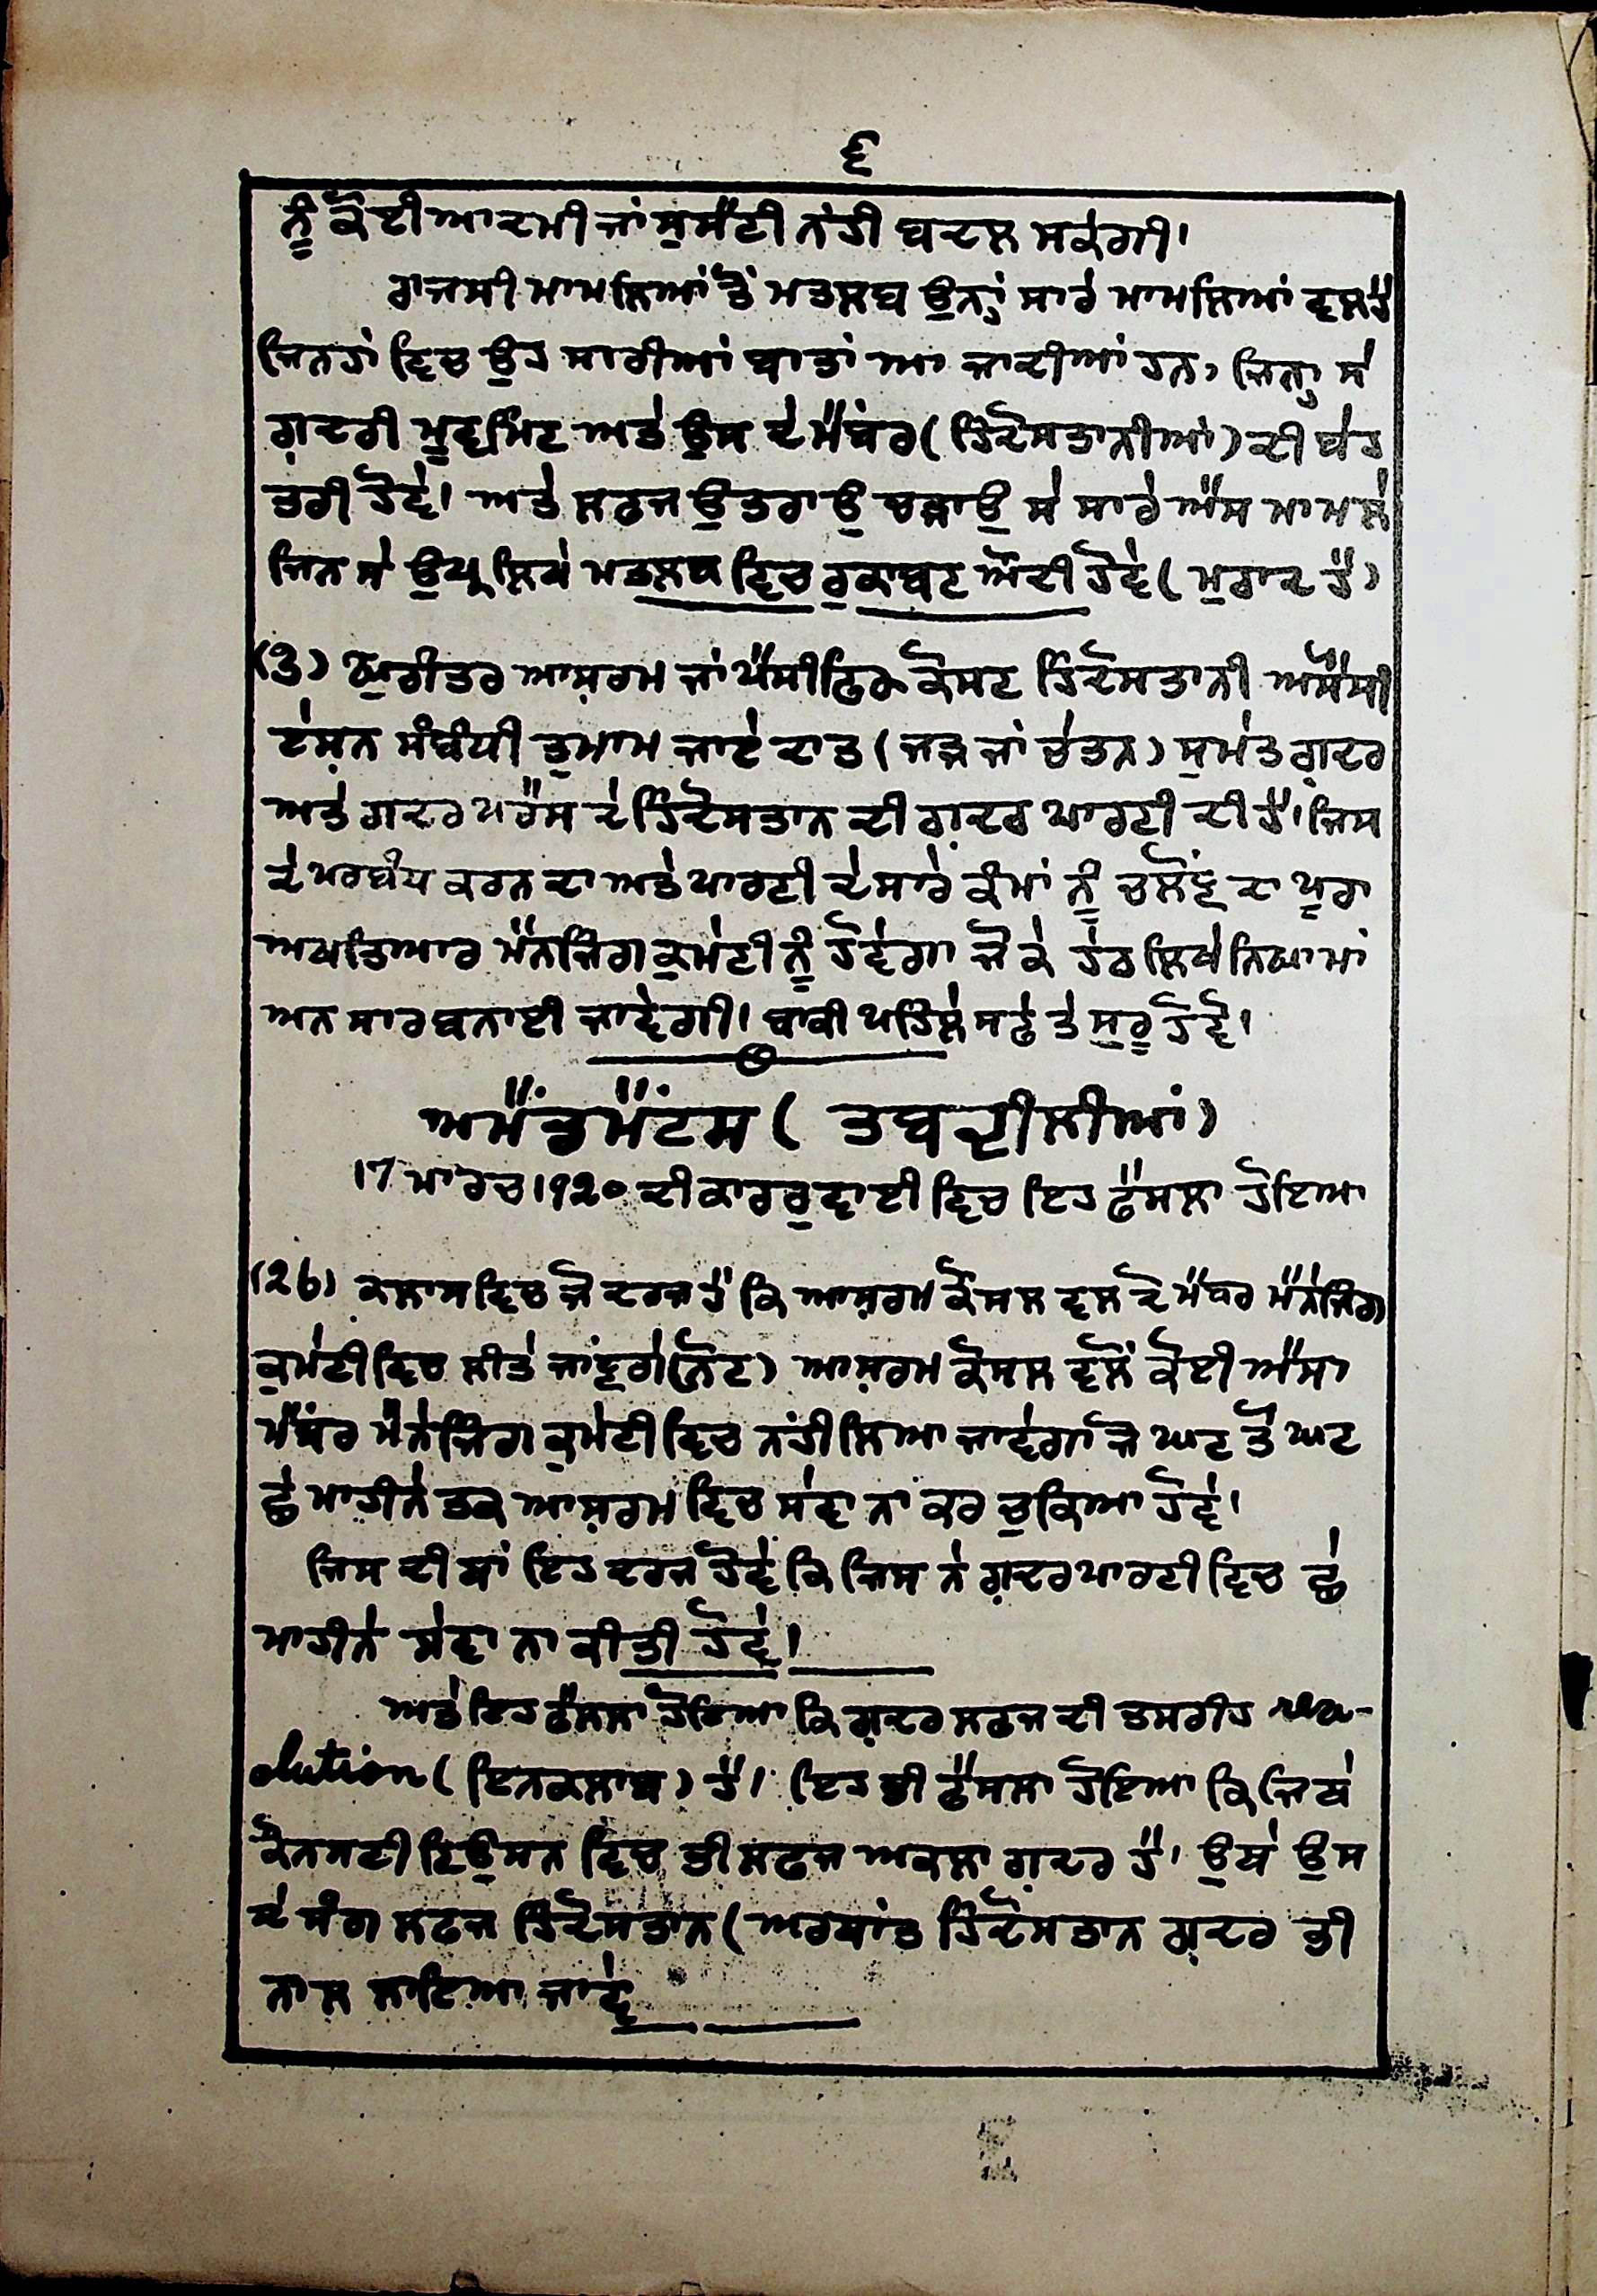 ੬
ਨੂੰ ਕੋਈ ਆਦਮੀ ਜਾਂ ਸੁਸੈਟੀ ਨਂਹੀ ਬਦਲ ਸਕੇਗੀ।
ਰਾਜਸੀ ਮਾਮਲਿਆਂ ਤੋਂ ਮਤਲਬ ਉਨ੍ਹਾਂ ਸਾਰੇ ਮਾਮਲਿਆਂ ਵਲ ਹੈ
ਜਿਨਹਾਂ ਵਿਚ ਉਹ ਸਾਰੀਆਂ ਬਾਤਾਂ ਆ ਜਾਦੀਆਂ ਹਨ, ਜਿਨ੍ਹ ਸੇ
ਗ਼ਦਰੀ ਮੁਵਮਿੰਟ ਅਤੇ ਉਸ ਦੇ ਮੈਂਬਰ (ਹਿੰਦੋਸਤਾਨੀਆਂ) ਦੀ ਬੇਹ
ਤਰੀ ਹੋਵੇ। ਅਤੇ ਲਫਜ ਉਤਰਾਉ ਚੜਾਉ ਸੇ ਸਾਰੇ ਐਸ ਮਾਮਲੇ
ਜਿਨ ਸੇ ਉਪ੍ਰ ਲਿਖੇ ਮਤਲਬ ਵਿਚ ਰੁਕਾਬਟ ਔਦੀ ਹੋਵੇ (ਮੁਰਾਦ ਹੈ)
(3) ਯੁਗੰਤਰ ਆਸ਼ਰਮ ਜਾਂ ਪੈਸੀਫਿਕ ਕੋਸਟ ਹਿੰਦੋਸਤਾਨੀ ਅਸੋਸੀ
ਏਸ਼ਨ ਸੰਬੰਧੀ ਤੁਮਾਮ ਜਾਏਦਾਤ (ਜੜ ਜਾਂ ਚੇਤਨ) ਸੁਮੇਤ ਗ਼ਦਰ
ਅਤੇ ਗਦਰ ਪਰੈਸ ਦੇ ਹਿੰਦੋਸਤਾਨ ਦੀ ਗ਼ਦਰ ਪਾਰਟੀ ਦੀ ਹੈ। ਜਿਸ
ਦੇ ਪਰਬੰਧ ਕਰਨ ਦਾ ਅਤੇ ਪਾਰਟੀ ਦੇ ਸਾਰੇ ਕੰਮਾਂ ਨੂੰ ਚਲੌਂਣ ਦਾ ਪੂਰਾ
ਅਖਤਿਆਰ ਮੈਨਜਿੰਗ ਕੁਮੇਟੀ ਨੂੰ ਹੋਵੇਗਾ ਜੋ ਕੇ ਹੇਠ ਲਿਖੇ ਨਿਯਾਮਾਂ
ਅਨ ਸਾਰ ਬਨਾਈ ਜਾਵੇਗੀ। ਬਾਕੀ ਪਹਿਲੇ ਸਫੇ ਤੇ ਸ਼ੁਰੂ ਹੋਵੇ।
ਅਮੈਂਡਮੈਂਟਸ (ਤਬਦੀਲੀਆਂ)
17 ਮਾਰਚ 1920 ਦੀ ਕਾਰਰੁਵਾਈ ਵਿਚ ਇਹ ਫੈਸਲਾ ਹੋਇਆ
(26) ਕਲਾਸ ਵਿਚ ਜੋ ਦਰਜ ਹੈ ਕਿ ਆਸ਼ਰਮ ਕੌਂਸਲ ਵਲ ਦੋ ਮੈਂਬਰ ਮੈਨੇਜਿੰਗ
ਕੁਮੇਟੀ ਵਿਚ ਲੀਤੇ ਜਾਂਵਗੇ (ਨੋਟ) ਆਸ਼ਰਮ ਕੌਸਲ ਵਲੋਂ ਕੋਈ ਐਸਾ
ਮੈਂਬਰ ਮੈਨੇਜਿੰਗ ਕੁਮੇਟੀ ਵਿਚ ਨਂਹੀ ਲਿਆ ਜਾਵੇਗਾ ਜੋ ਘਟ ਤੋਂ ਘਟ
ਛੇ ਮਾਹੀਨੇ ਤਕ ਆਸ਼ਰਮ ਵਿਚ ਸੇਵਾ ਨਾ ਕਰ ਚੁਕਿਆ ਹੋਵੇ।
ਜਿਸ ਦੀ ਥਾਂ ਇਹ ਦਰਜ ਹੋਵੇ ਕਿ ਜਿਸ ਨੇ ਗ਼ਦਰ ਪਾਰਟੀ ਵਿਚ ਛੇ
ਮਾਹੀਨੇ ਸੇਵਾ ਨਾ ਕੀਤੀ ਹੋਵੇ।
ਅਤੇ ਇਹ ਫੈਸਲਾ ਹੋਇਆ ਕਿ ਗ਼ਦਰ ਲਫਜ ਦੀ ਤਸਰੀਹ revo-
lution (ਇਨਕਲਾਬ) ਹੈ। ਇਹ ਭੀ ਫੈਸਲਾ ਹੋਇਆ ਕਿ ਜਿਥੇ
ਕੋਨਸਟੀਟਿਉਸਨ ਵਿਚ ਭੀ ਲਫਜ ਅਕਲਾ ਗ਼ਦਰ ਹੈ। ਉਥੇ ਉਸ
ਦੇ ਸੰਗ ਲਫਜ ਹਿੰਦੋਸਤਾਨ (ਅਰਥਾਤ ਹਿੰਦੋਸਤਾਨ ਗ਼ਦਰ ਭੀ
ਨਾਲ ਲਾਇਆ ਜਾਵੇ